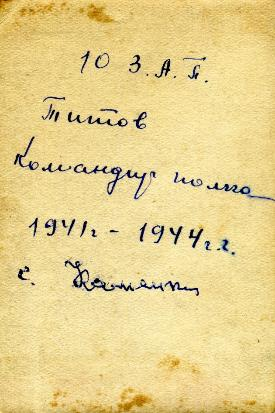 10 З.А.П.
Титов
Командир полка
1941г - 1944г.г.
с. Каменка